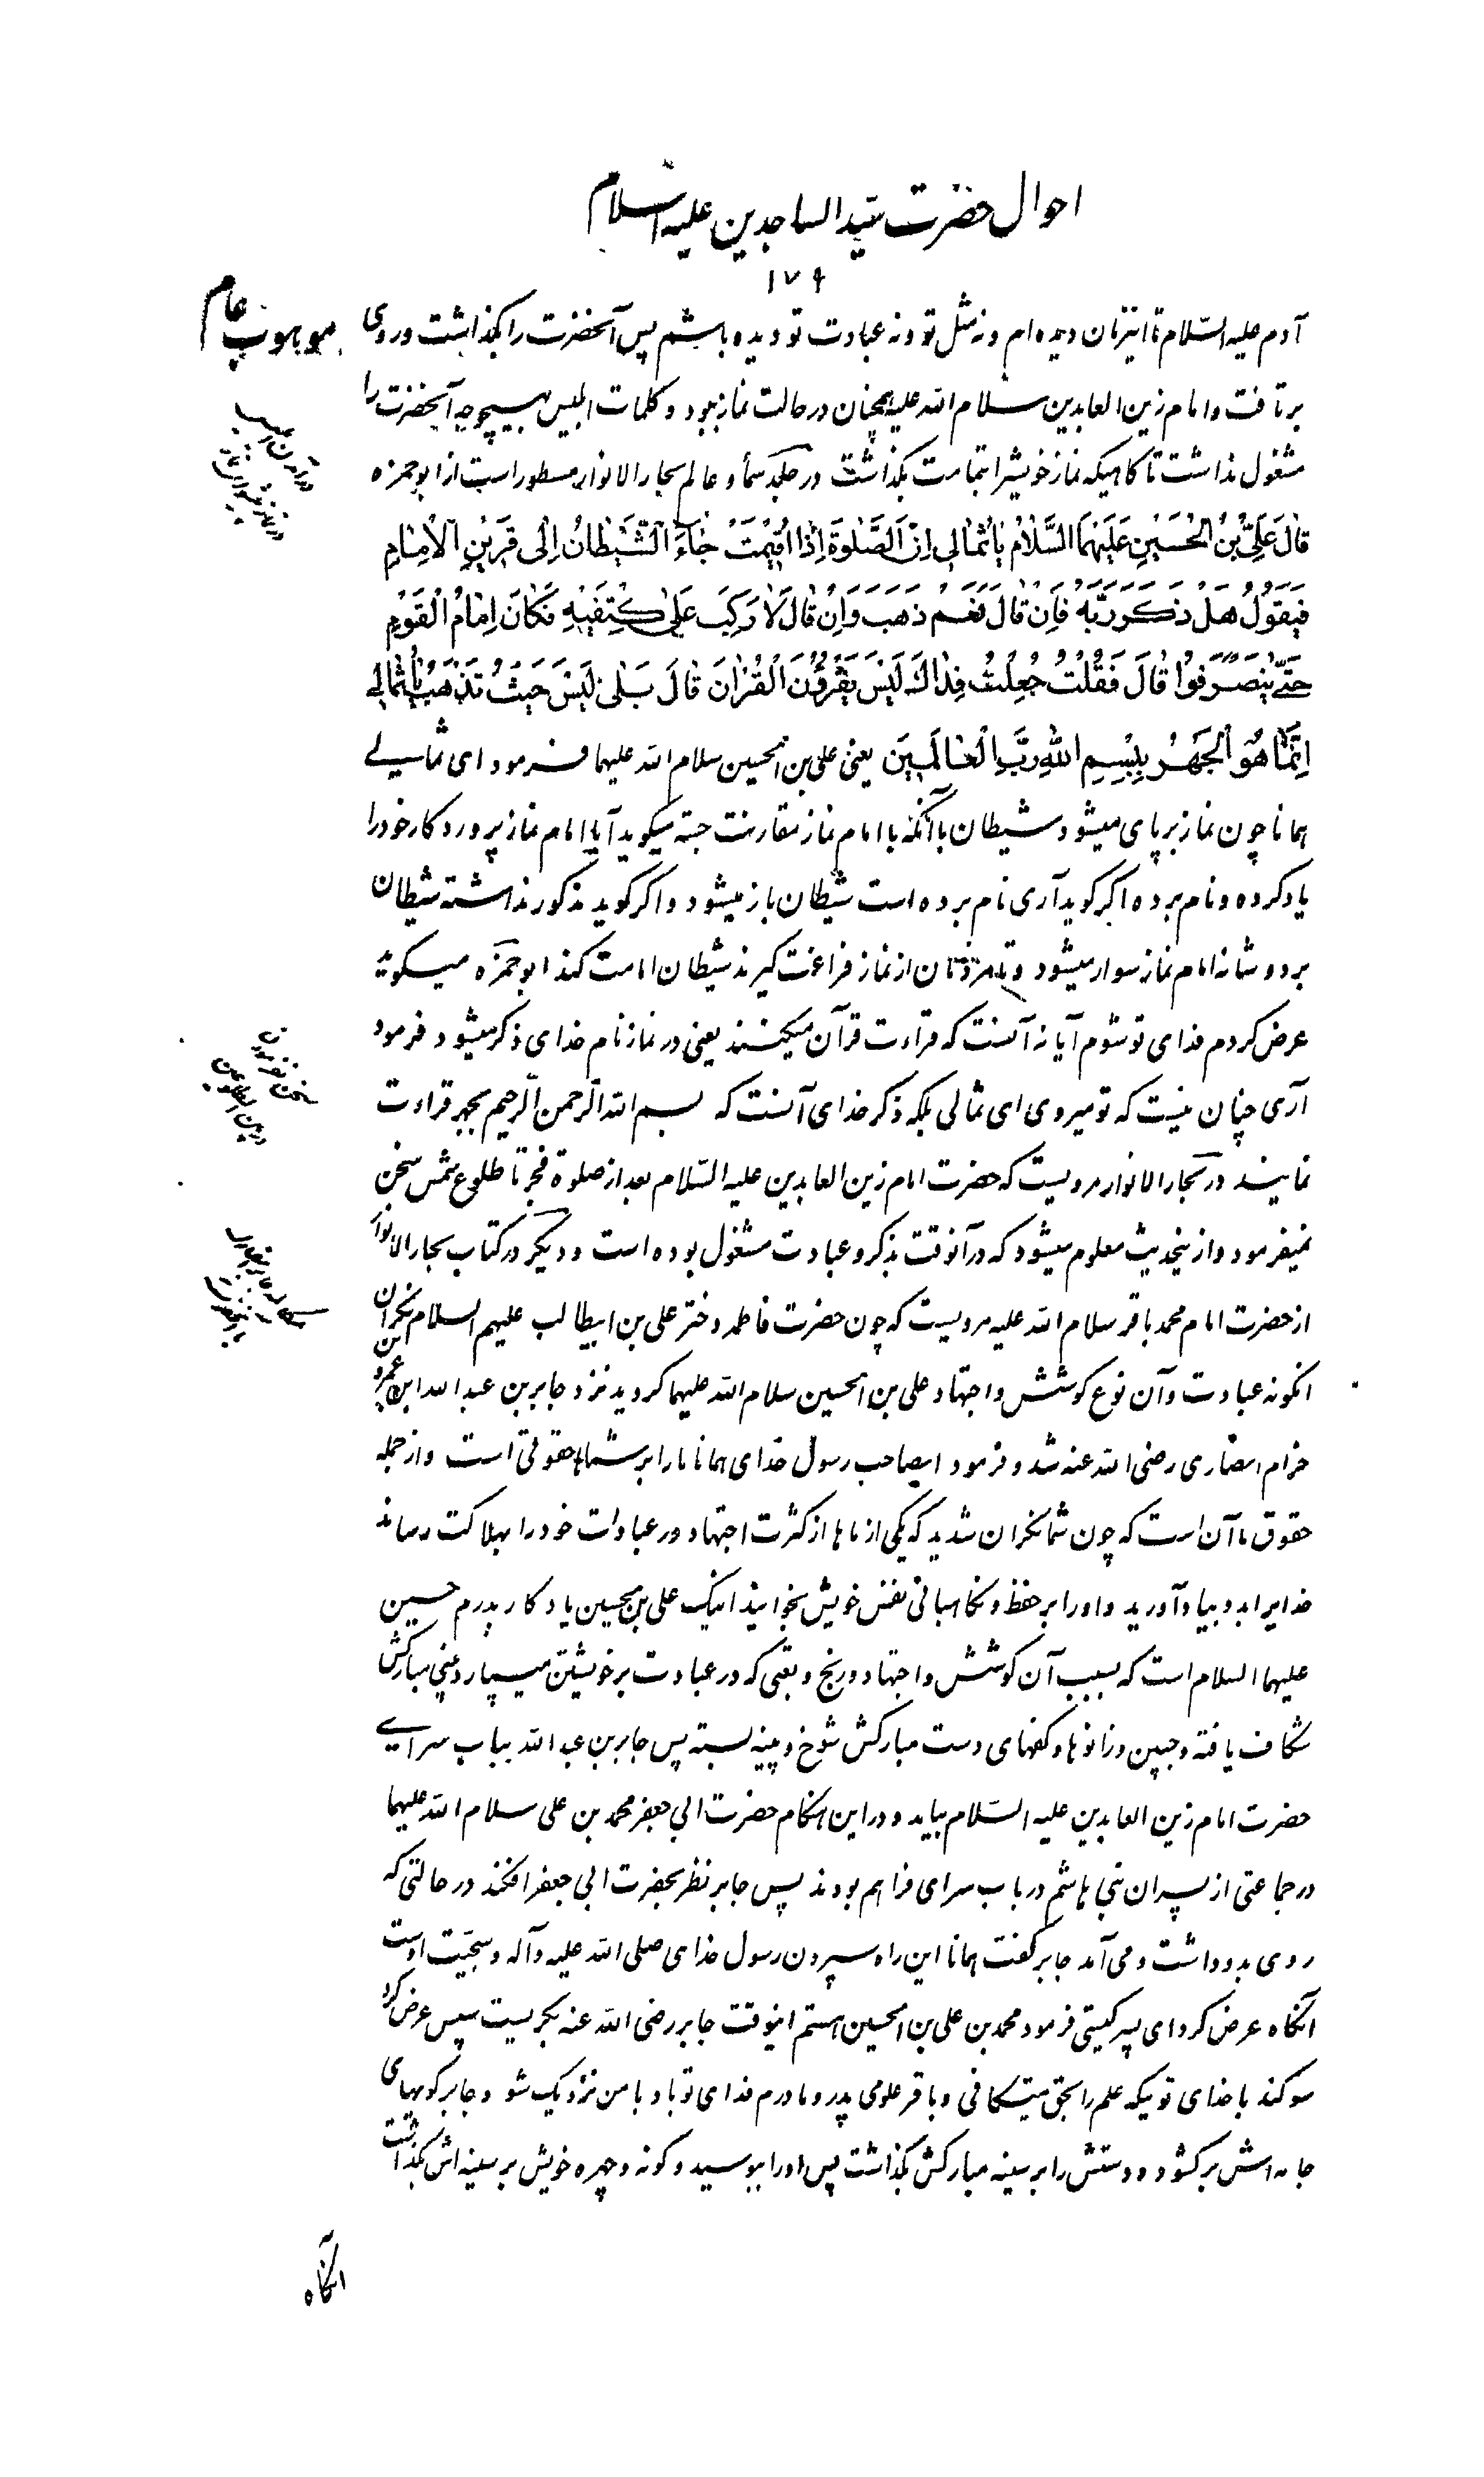 احوال حضرت سیّد الساجدین علیه السلام
۱۷۶
آدم علیه السّلام تا اینزمان دیده‌ام و نه مثل تو و نه عبادت تو دیده باشم پس آنحضرت را بگذاشت و روی
برتافت و امام زین العابدین سلام الله علیه همچنان در حالت نماز ببود و کلمات ابلیس بهیچوجه آنحضرت را
مشغول نداشت تا کاهیکه نماز خویشرا بتمامت بگذاشت در جلد سماء و عالم بحار الانوار مسطور است از ابو حمزه
قالَ عَلِیُّ بْنُ الْحُسَیْنِ عَلَیْهِمَا السَّلامُ یا ثُمالِی اِنَّ الصَّلوةَ اِذا اُقیمَتْ جاءَ الشَّیْطانُ اِلی قَرینِ الْاِمامِ
فَیَقُولُ هَلْ ذَکَرَ رَبَّهُ فَاِنْ قالَ نَعَمْ ذَهَبَ وَاِنْ قالَ لا رَکِبَ عَلی کِتْفَیْهِ فَکانَ اِمامُ الْقَوْمِ
حَتّی یَنْصَرِفُوا قالَ فَقُلْتُ جُعِلْتُ فِداکَ لَیْسَ یَقْرَؤُنَ الْقُرْانَ قالَ بَلی لَیْسَ حَیْثُ تَذْهَبُ یا ثُمالِی
اِنَّما هُوَ الْجَهْرُ بِبِسْمِ اللهِ رَبِّ الْعالَمینَ یعنی علی بن الحسین سلام الله علیهما فرمود ای ثمالی
همانا چون نماز بر پای میشود شیطان با آنکه با امام نماز مقارنت جسته میگوید آیا امام نماز پروردکار خود را
یاد کرده و نام برده اکر کوید آری نام برده است شیطان باز میشود و اکر کوید مذکور نداشته شیطان
بر دو شانه امام نماز سوار میشود و تا مردمان از نماز فراغت کیرند شیطان امامت کند ابو حمزه میکوید
عرض کردم فدای تو شوم آیا نه آنست که قراءت قرآن میکنند یعنی در نماز نام خدای ذکر میشود فرمود
آری چنان نیست که تو میروی ای ثمالی بلکه ذکر خدای آنست که بسم الله الرّحمن الرّحیم بجهر قراءت
نمایند در بحار الانوار مرویست که حضرت امام زین العابدین علیه السّلام بعد از صلوة فجر تا طلوع شمس سخن
نمیفرمود و از ینحدیث معلوم میشود که در آنوقت بذکر و عبادت مشغول بوده است و دیکر در کتاب بحار الانوار
از حضرت امام محمد باقر سلام الله علیه مرویست که چون حضرت فاطمه دختر علی بن ابیطالب علیهم السلام نکران
انکونه عبادت و آن نوع کوشش و اجتهاد علی بن الحسین سلام الله علیهما کردید نزد جابر بن عبد الله ابن عمرو بن
حزام انصاری رضی الله عنه شد و فرمود ایصاحب رسول خدای همانا ما را بر شما حقوقی است و از جمله
حقوق ما آن است که چون شما نکران شدید که یکی از ماها از کثرت اجتهاد در عبادات خود را بهلاکت رساند
خدایرا بدو بیاد آورید و او را بر حفظ و نکاهبانی نفس خویش بخوانید اینک علی بن الحسین یادکار پدرم حسین
علیهما السلام است که بسبب آن کوشش و اجتهاد و رنج و تعبی که در عبادت بر خویشتن میسپارد بینی مبارکش
شکاف یافته و جبین و زانوها و کفهای دست مبارکش شوخ و پینه بسته پس جابر بن عبد الله بباب سرای
حضرت امام زین العابدین علیه السّلام بیامد و در این هنکام حضرت ابی جعفر محمد بن علی سلام الله علیهما
در جماعتی از پسران بنی هاشم در باب سرای فراهم بودند پس جابر نظر بحضرت ابی جعفر افکند در حالتی که
روی بدو داشت و می‌آمد جابر کفت همانا این راه سپردن رسول خدای صلی الله علیه و آله و سجیّت اوست
آنکاه عرض کرد ای پسر کیستی فرمود محمد بن علی بن الحسین هستم اینوقت جابر رضی الله عنه بکریست سپس عرض کرد
سوکند با خدای توئیکه علم را بحق میشکافی و باقر علومی پدر و مادرم فدای تو باد با من نزدیک شو و جابر کویهای
جامه‌اش برکشود و دستش را بر سینه مبارکش بگذاشت پس او را ببوسید و کونه و چهره خویش بر سینه‌اش بگذاشت
آنکاه